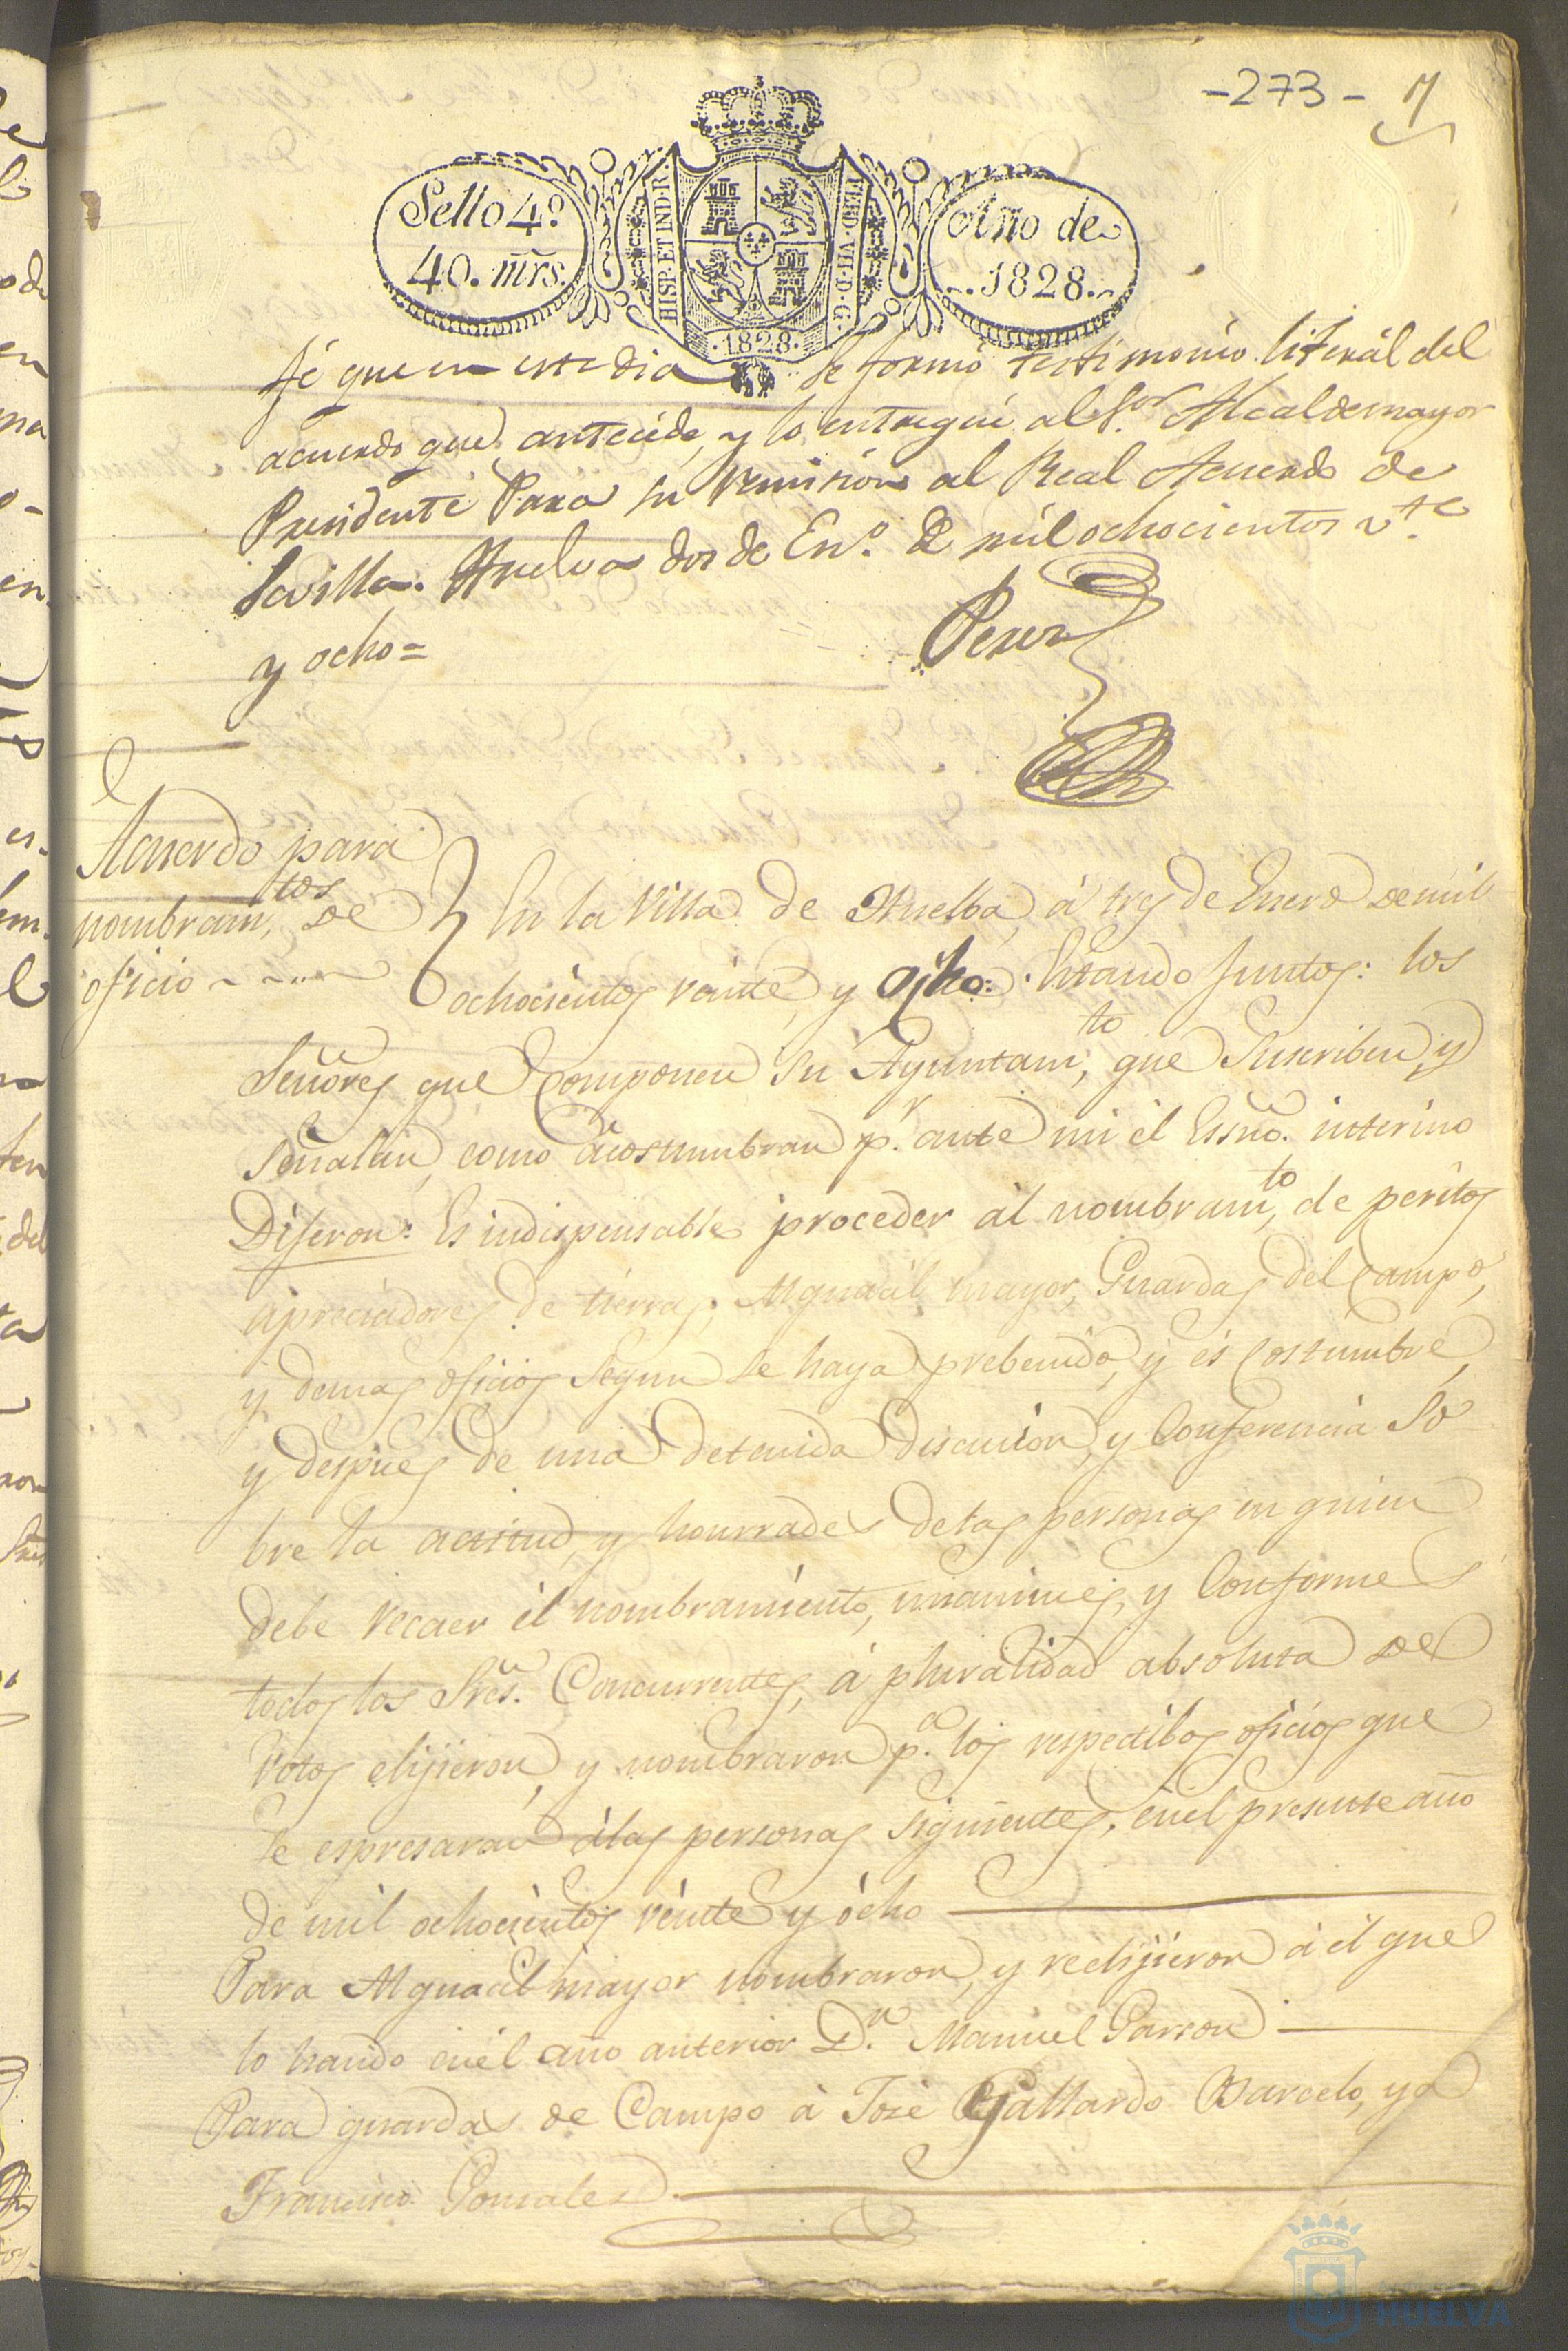 -273- 7
Sello 4º
40. mrs.
HISP. ET IND. R.
FERD. VII. D. G.
.1828.
Año de
1828.
fé que en este dia se formó testimonio literál del
acuerdo que antecede, y lo entregúe al Sor Alcaldemayor
Presidente Para su remision al Real Acuerdo de
Sevilla. Huelva dos de Eno. de mil ochocientos vte
y ocho=
Perez
Acuerdo para
nombramtos, de
oficio
En la Villa de Huelba, á tres de Enero de mil
ochocientos veinte, y ocho: Estando Juntos: los
Señores que Componen su Ayuntamto, que Suscriben, y
Señalan, como acostumbran pr. ante mi él Essno. interino
Dijeron: Es indispensable proceder ál nombramto, de peritos
apreciadores de tierras, Alguacil mayor, Guardas del Campo,
y demas oficios segun se haya prebenido, y és Costumbre,
y despues de una detenida discucion, y Conferencia So
bre la actitud, y honrrades de las personas en quien
debe recaer él nombramiento, unanimes, y Conformes
todos los Sres. Concurrentes, á pluralidad absoluta de
Votos elijieron, y nombraron pa. los respectibos oficios que
se espresarán á las personas Siguientes, en el presente año
de mil ochocientos veinte y ócho
Para Alguacil mayor nombraron, y reelijieron á él que
lo ha sido en él año anterior Dn. Manuel Garzon
Para guardas de Campo á José Gallardo Barcelo, y á
Francisco Gonzales
HUELVA